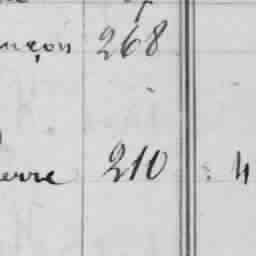 ançon 268
ierre 210 4